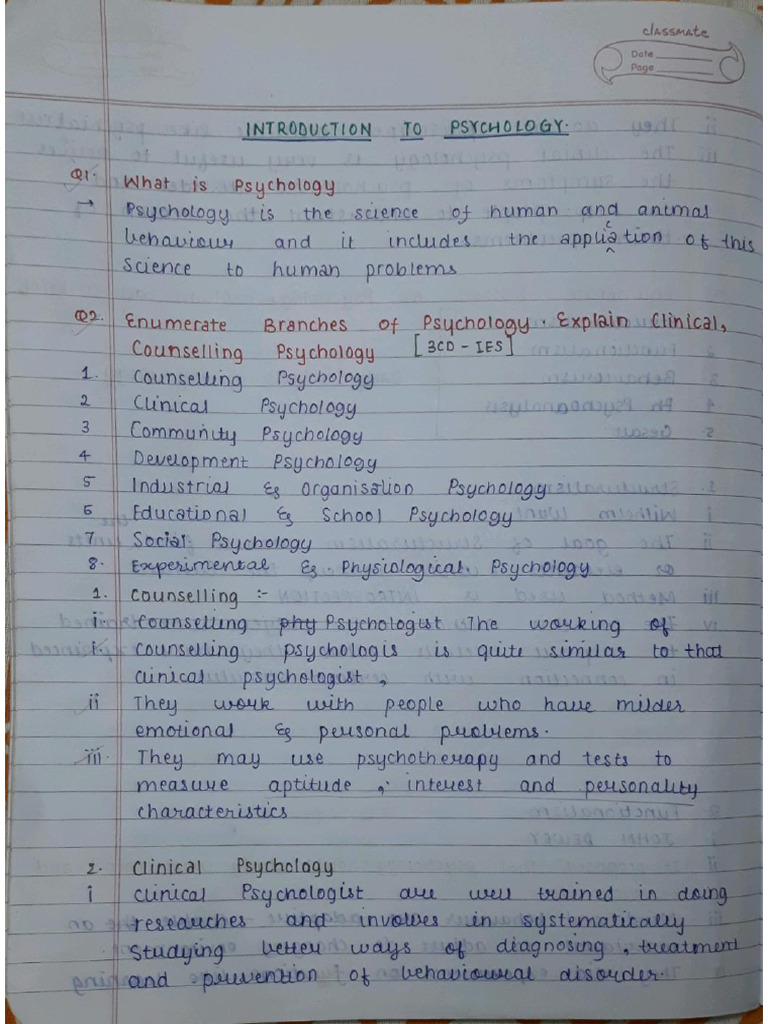 classmate
Date
Page
INTRODUCTION TO PSYCHOLOGY.
Q1. What is Psychology
→ Psychology is the science of human and animal
behaviour and it includes the application of this
science to human problems
Q2. Enumerate Branches of Psychology. Explain Clinical,
Counselling Psychology [3CD - IES]
1. Counselling Psychology
2 Clinical Psychology
3 Community Psychology
4 Development Psychology
5 Industrial & Organisation Psychology
6 Educational & School Psychology
7 Social Psychology
8. Experimental & Physiological Psychology
1. Counselling :-
i. Counselling phy Psychologist The working of
i. counselling psychologis is quite similar to that
clinical psychologist,
ii They work with people who have milder
emotional & personal problems.
iii. They may use psychotherapy and tests to
measure aptitude, interest and personality
characteristics
2. Clinical Psychology
i Clinical Psychologist are well trained in doing
researches and involves in systematically
Studying better ways of diagnosing, treatment
and prevention of behavioural disorder.